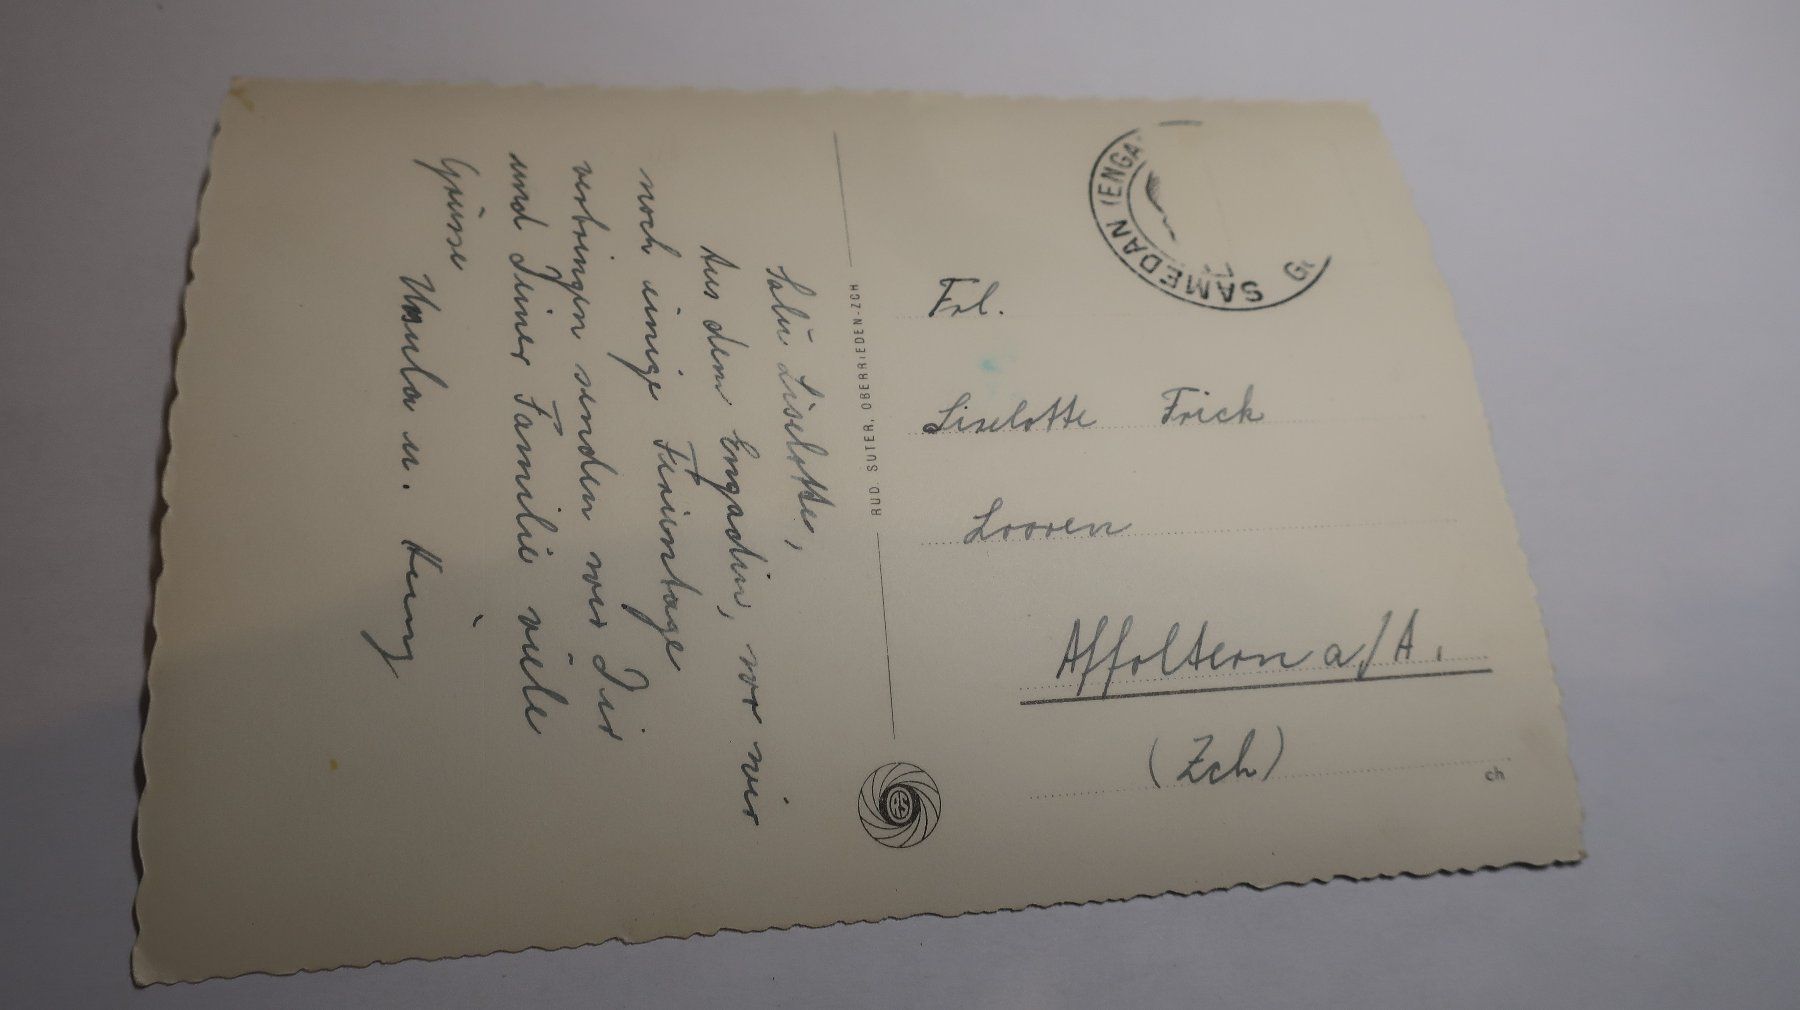 Salü Liselotte,
Aus dem Engadin, wo wir
noch einige Ferientage
verbringen senden wir Dir
und Deiner Familie viele
Grüsse
Ursula u. Heiny
RUD. SUTER, OBERRIEDEN-ZCH
RS
SAMEDAN (ENGA
Frl.
Liselotte Frick
Looren
Affoltern a/A.
(Zch)
ch